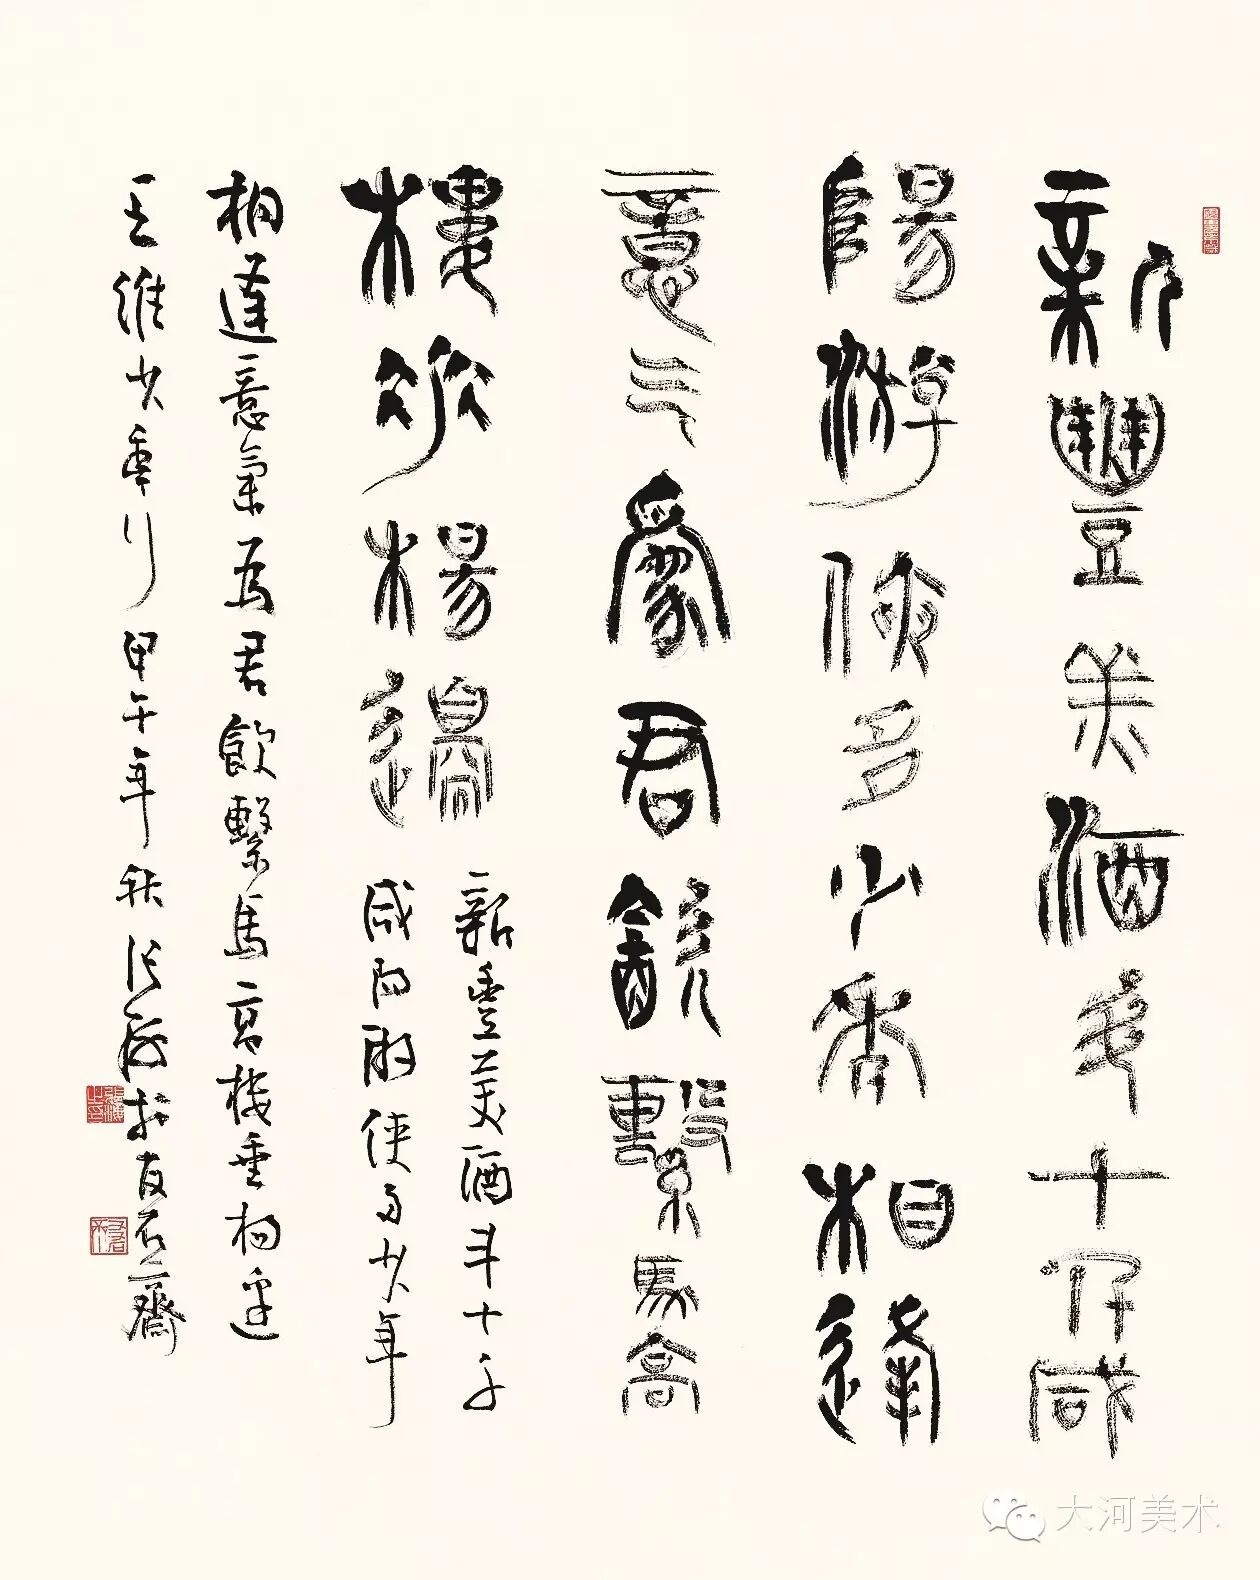 新豐美酒斗十千咸
陽游俠多少年相逢
意气爲君飲繫馬高
樓𠂹楊邊
新豐美酒斗十千
咸陽游俠多少年
相逢意氣為君飲繫馬高樓垂柳邊
王維少年行甲午年秋張海於友石齋
大河美术